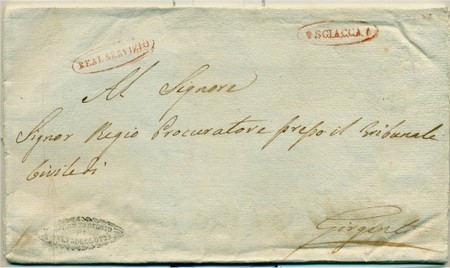 REAL SERVIZIO
SCIACCA
Al Signore
Signor Regio Procuratore presso il Tribunale
Civile di
Girgenti